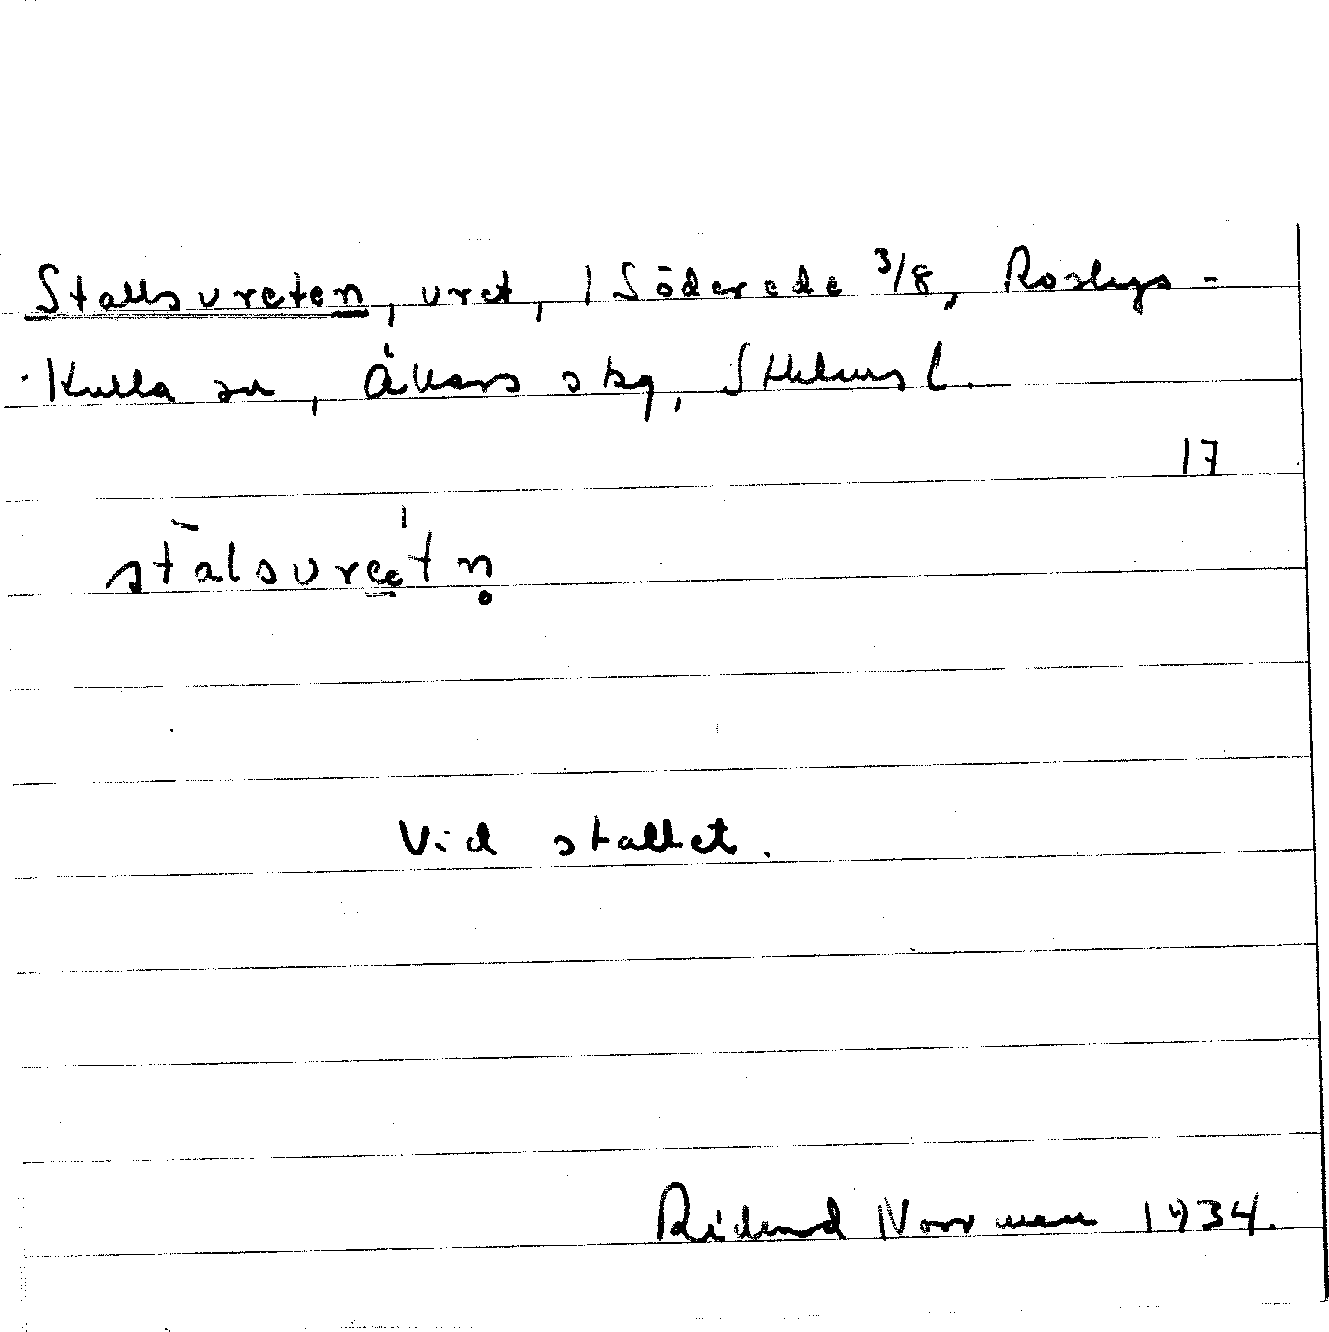 Stallsvreten, vret, 1 Söderede 3/8, Roslags-
Kulla sn, Åkers skg, Sthlms l.
17
stālsvreet'n̥
Vid stallet.
Rickard Norrman 1934.